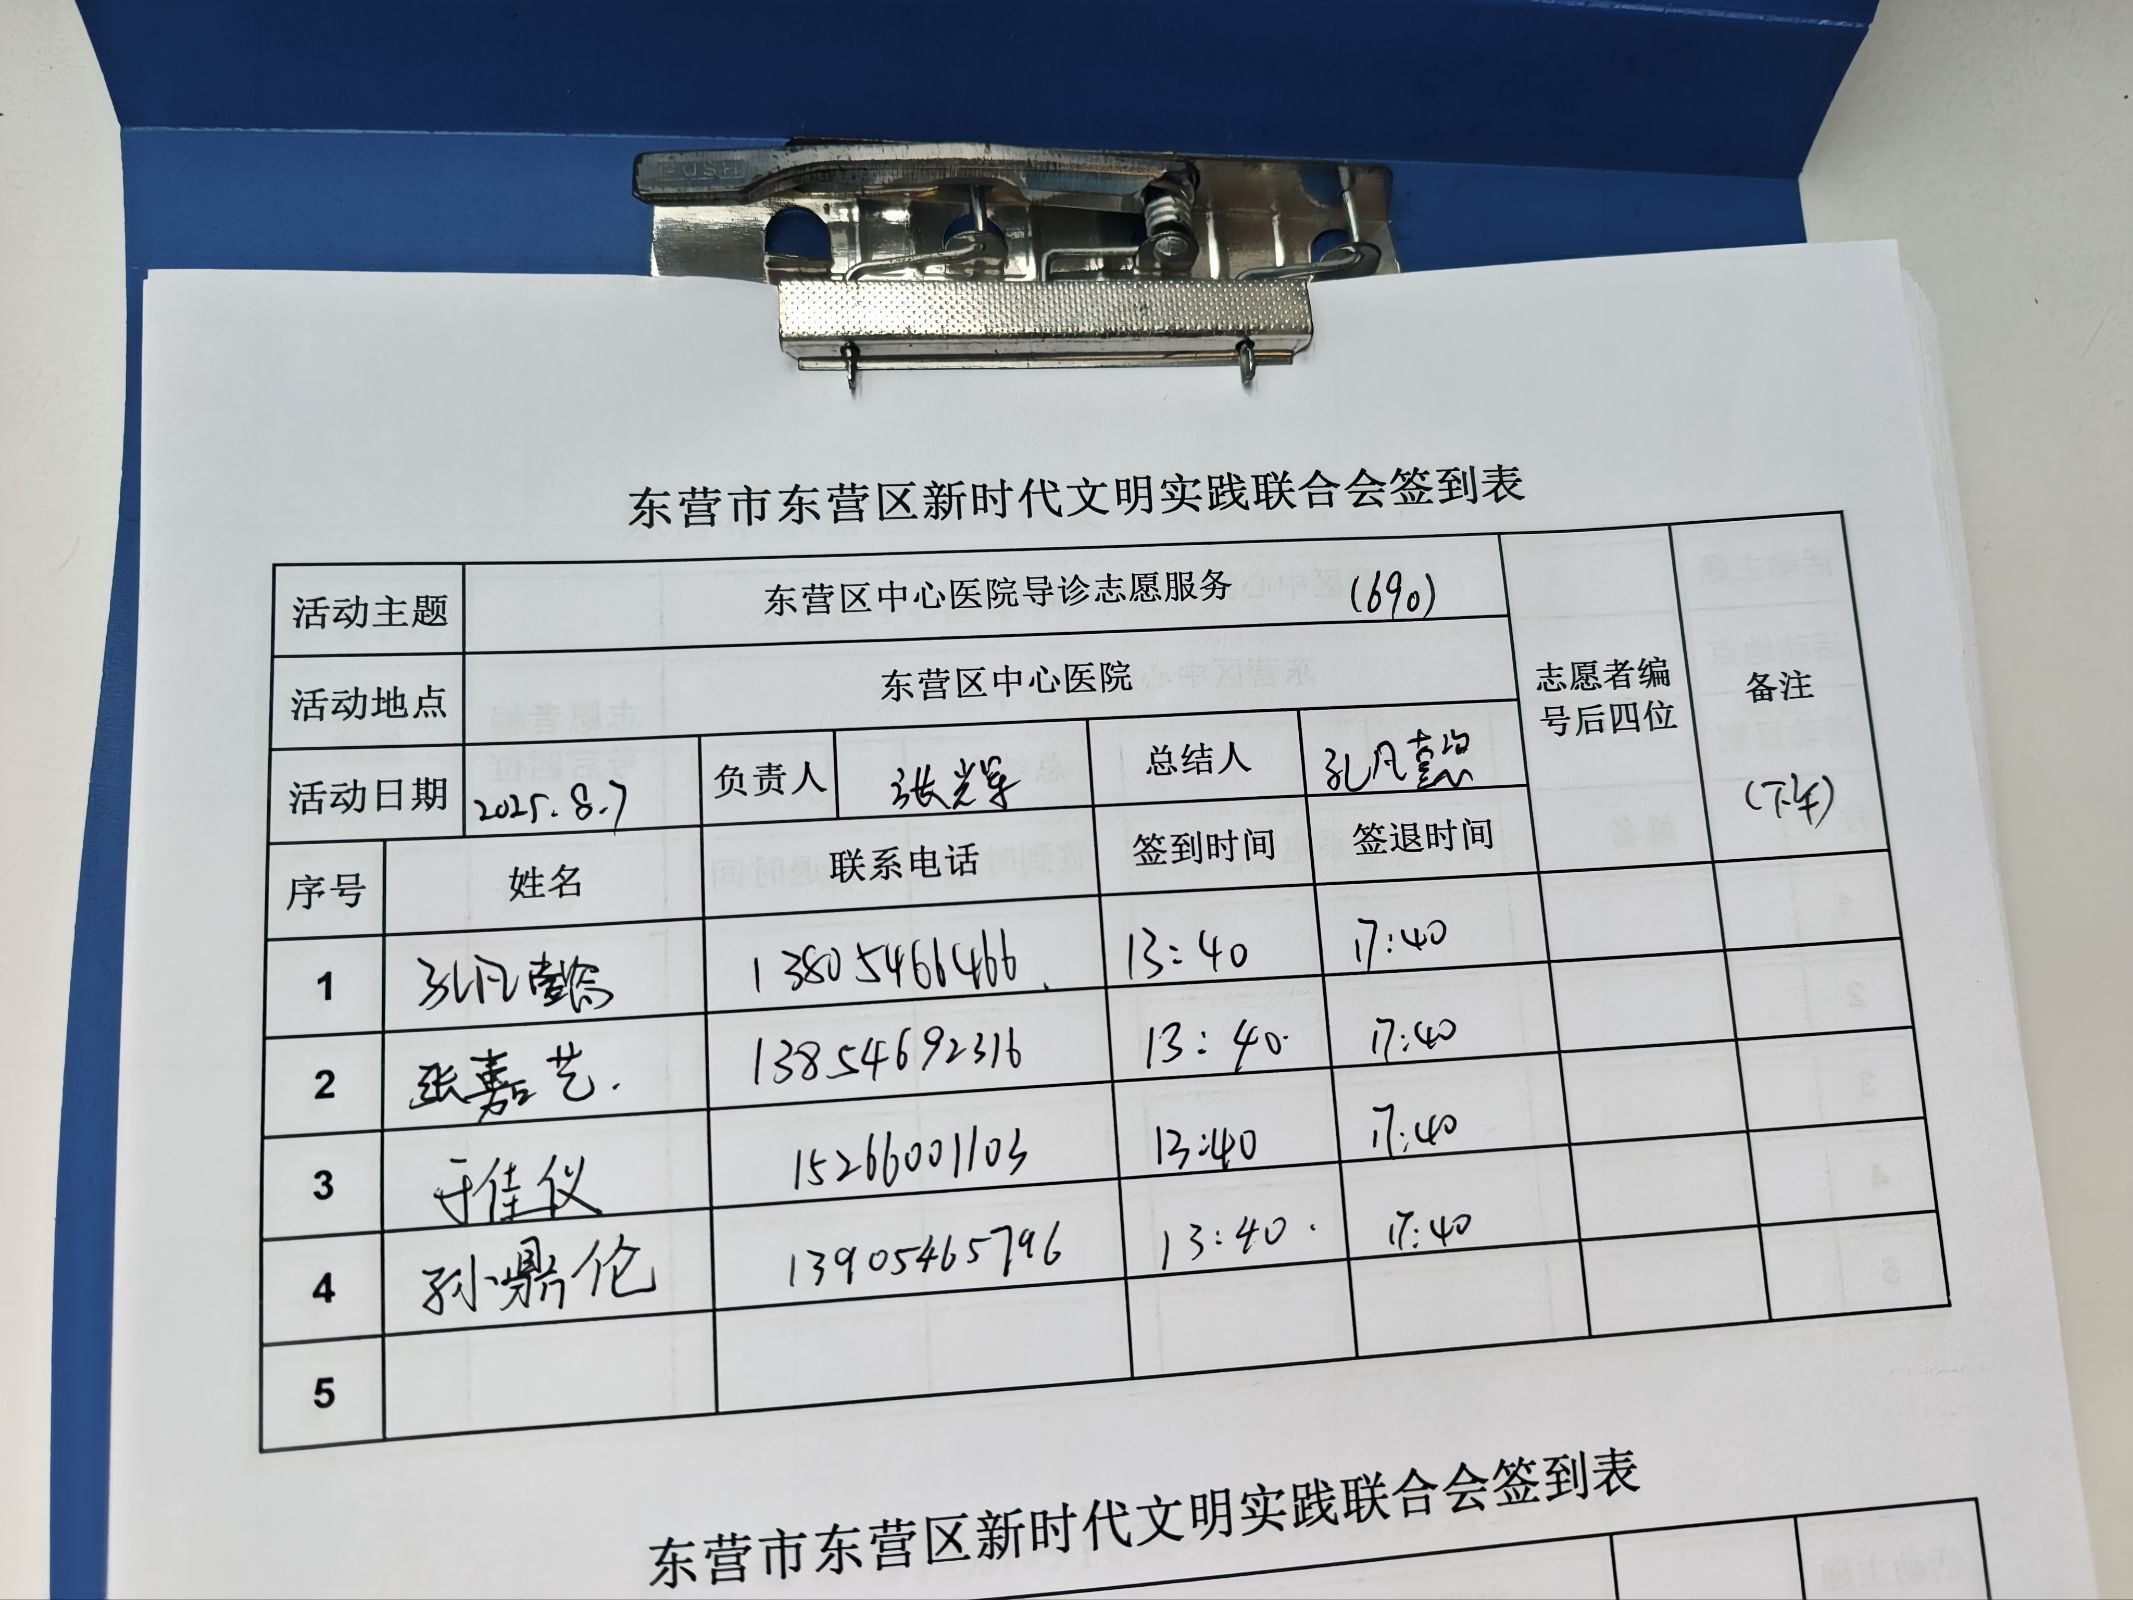 PUSH
东营市东营区新时代文明实践联合会签到表
活动主题 东营区中心医院导诊志愿服务 (690)
活动地点 东营区中心医院
志愿者编号后四位 备注 (下午)
活动日期 2025.8.7 负责人 张光军 总结人 孔凡
序号 姓名 联系电话 签到时间 签退时间
1 孔凡 13805466466 13:40 17:40
2 张嘉艺 13854692316 13:40 17:40
3 于佳仪 15266001103 13:40 17:40
4 孙鼎伦 13905465796 13:40 17:40
5
东营市东营区新时代文明实践联合会签到表